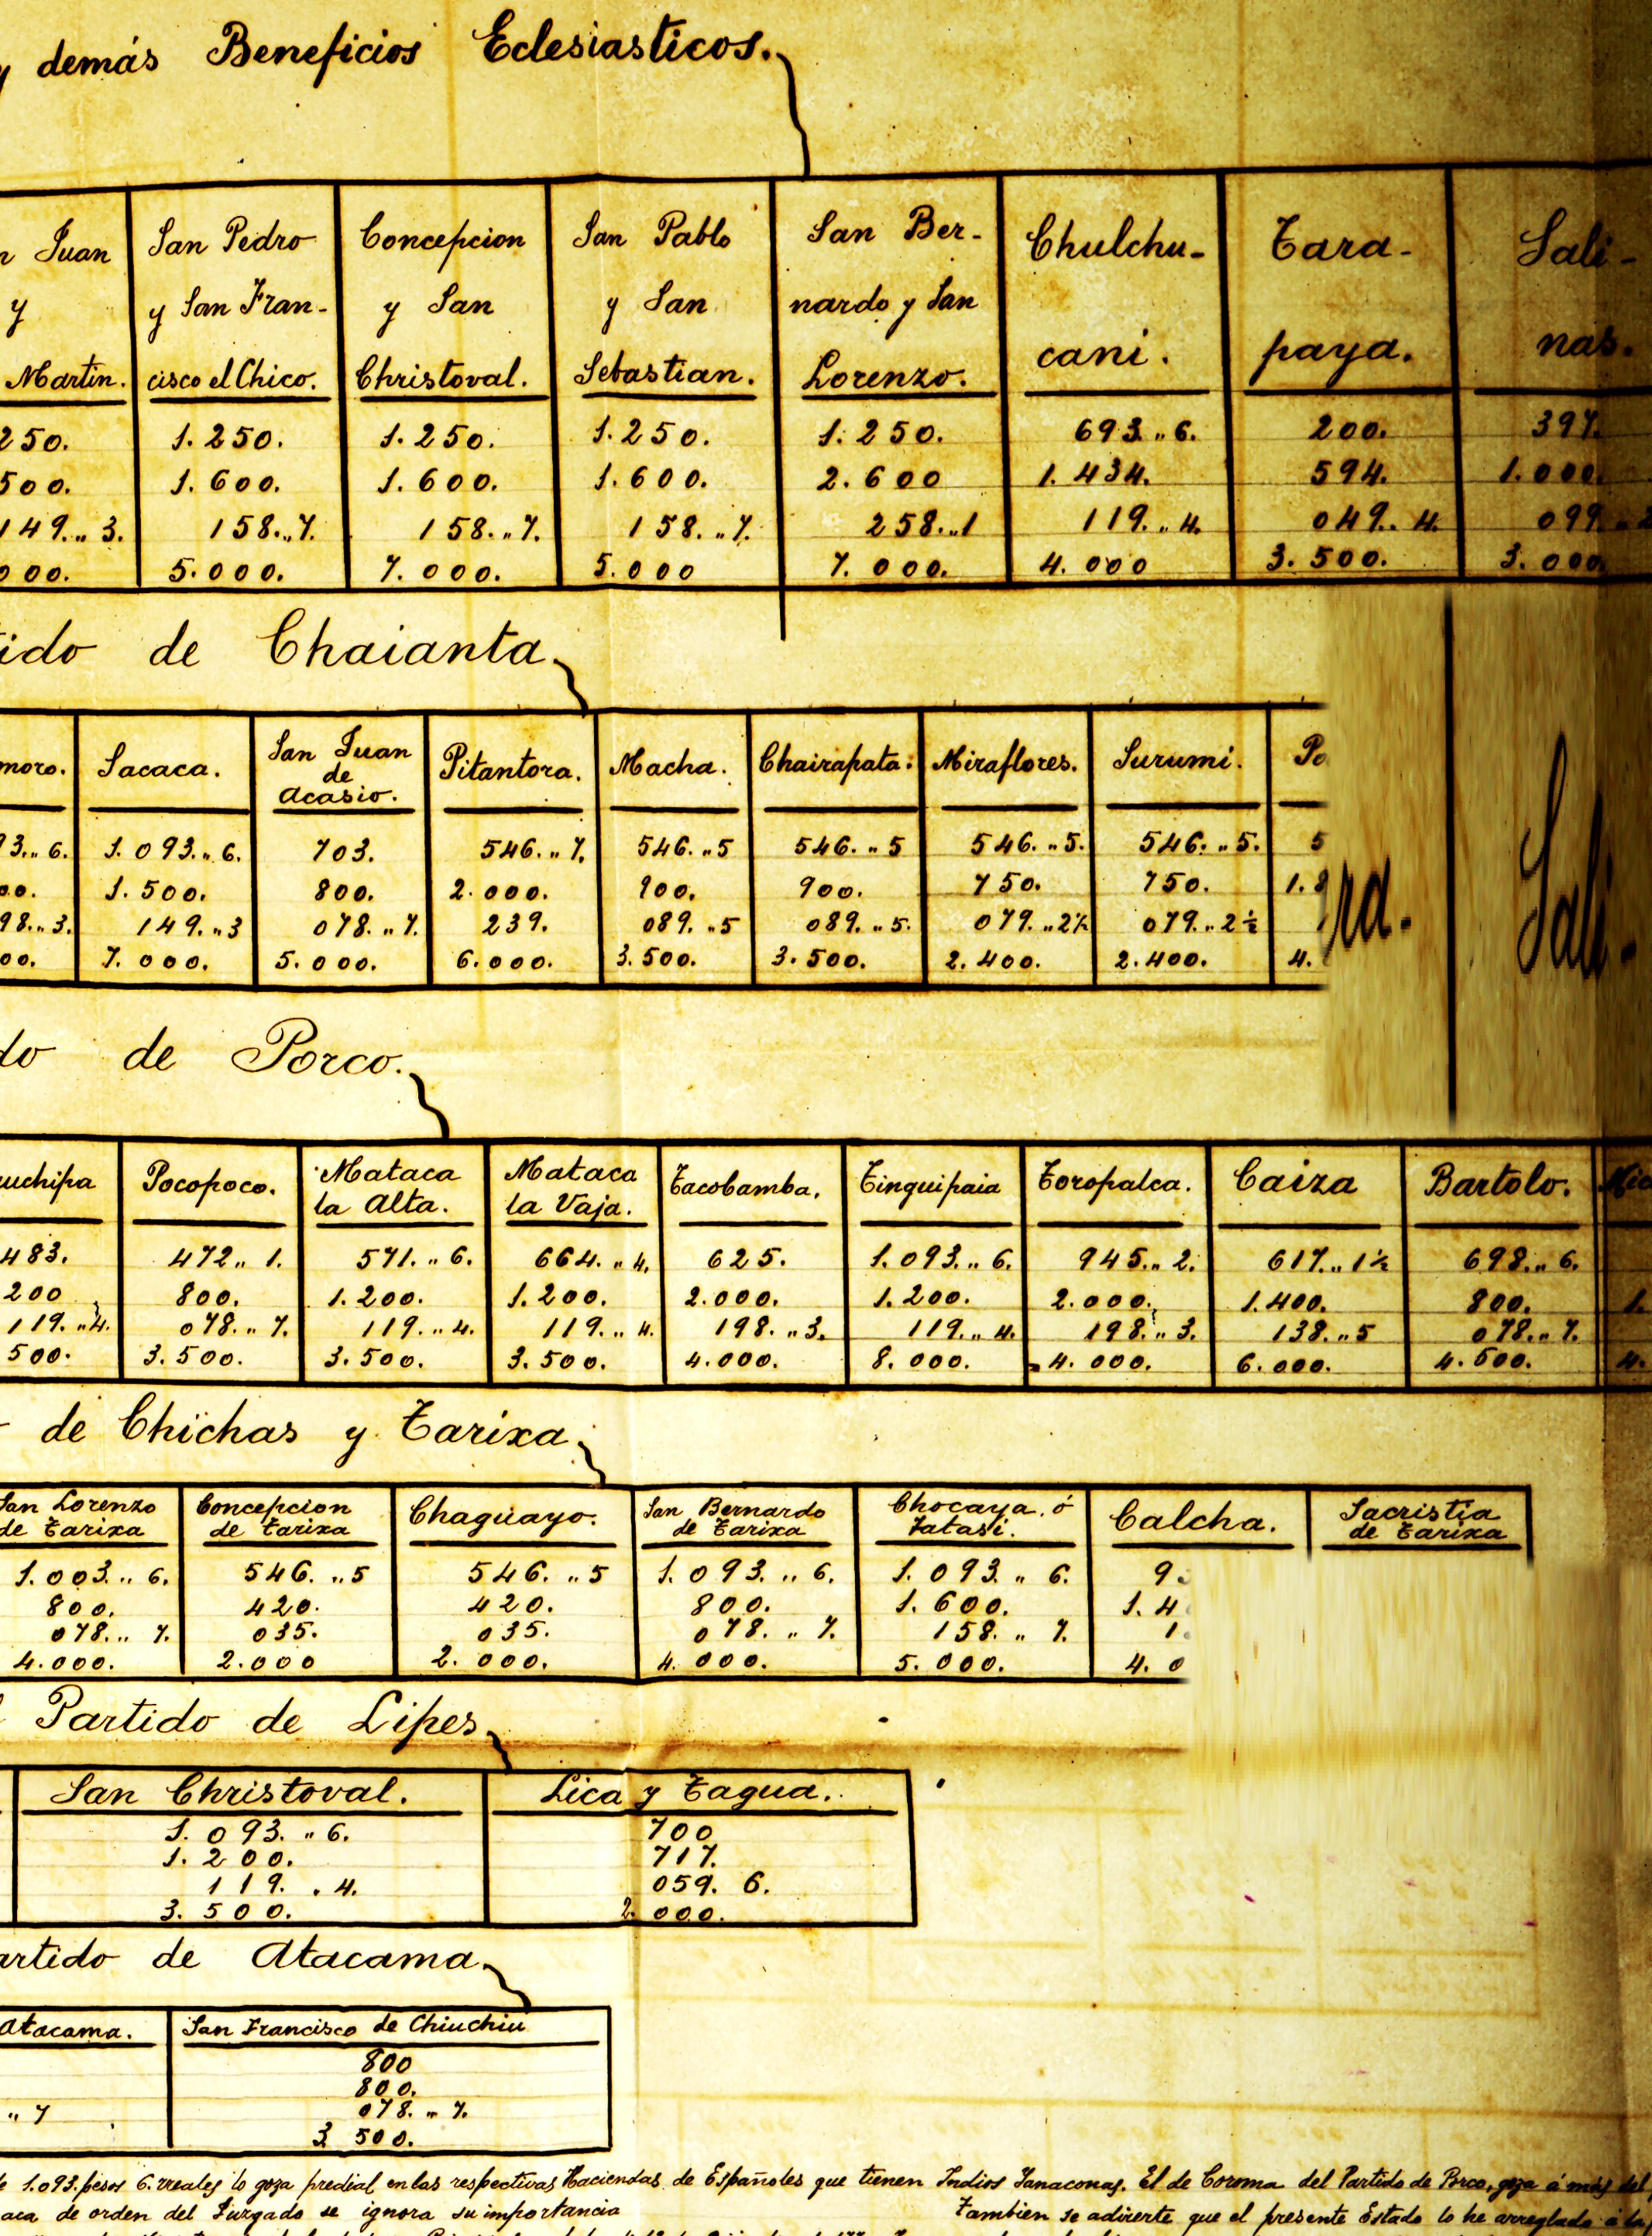 y demás Beneficios Eclesiasticos.
Juan San Pedro Concepcion San Pablo San Ber- Chulchu- Tara- Sali-
y y San Fran- y San y San nardo y San cani. paya. nas.
Martin. cisco el Chico. Christoval. Sebastian. Lorenzo.
250. 1.250. 1.250. 1.250. 1.250. 693.,,6. 200. 397.
500. 1.600. 1.600. 1.600. 2.600 1.434. 594. 1.000.
149.,,3. 158.,,7. 158.,,7. 158.,,7. 258.,,1 119.,,4. 049.. 4. 099.
000. 5.000. 7.000. 5.000 7.000. 4.000 3.500. 3.000
de Chaianta.
moro. Sacaca. San Juan de Acasio. Pitantora. Macha. Chairapata. Miraflores. Surumi. Po
93.,,6. 1.093.,,6. 703. 546.,,7. 546.,,5 546.,,5 546.,,5. 546.,,5. 5
00. 1.500. 800. 2.000. 900. 900. 750. 750. 1.8
98.,,3. 149.,,3 078.,,7. 239. 089.,,5 089.,,5. 079.,,2½ 079.,,2½
00. 7.000. 5.000. 6.000. 3.500. 3.500. 2.400. 2.400. 4.
ra- Sali-
do de Porco.
uchipa Pocopoco. Mataca la Alta. Mataca la Vaja. Tacobamba. Tinguipaia Toropalca. Caiza Bartolo.
483. 472,, 1. 571.,,6. 664.,,4. 625. 1.093.,,6. 945.,,2. 617.,,1½ 698.,,6.
200 800. 1.200. 1.200. 2.000. 1.200. 2.000. 1.400. 800. 1.
119.,,4. 078.,,7. 119.,,4. 119.,,4. 198.,,3. 119.,,4. 198.,,3. 138.,,5 078.,,7.
500. 3.500. 3.500. 3.500. 4.000. 8.000. 4.000. 6.000. 4.500. 4.
de Chichas y Tarixa.
San Lorenzo de Tarixa Concepcion de Tarixa Chaguayo. San Bernardo de Tarixa Chocaya, ó Tatasi. Calcha. Sacristia de Tarixa
1.003.,,6. 546.,,5 546.,,5 1.093.,,6. 1.093.,,6. 9
800. 420. 420. 800. 1.600. 1.4
078.,,7. 035. 035. 078.,,7. 158.,,7. 1
4.000. 2.000 2.000. 4.000. 5.000. 4.0
Partido de Lipes.
San Christoval. Lica y Tagua.
1.093.,,6. 700
1.200. 717.
119. . 4. 059. 6.
3.500. 2.000.
artido de Atacama.
Atacama. San Francisco de Chiuchiu
800
800.
,,7 078.,,7.
3 500.
1.093. pesos 6. rreales lo goza predial en las respectivas Haciendas de Españoles que tienen Indios Yanaconas. El de Coroma del Partido de Porco, goza á mas del
aca de orden del Juzgado se ignora su importancia Tambien se advierte que el presente Estado lo he arreglado á la